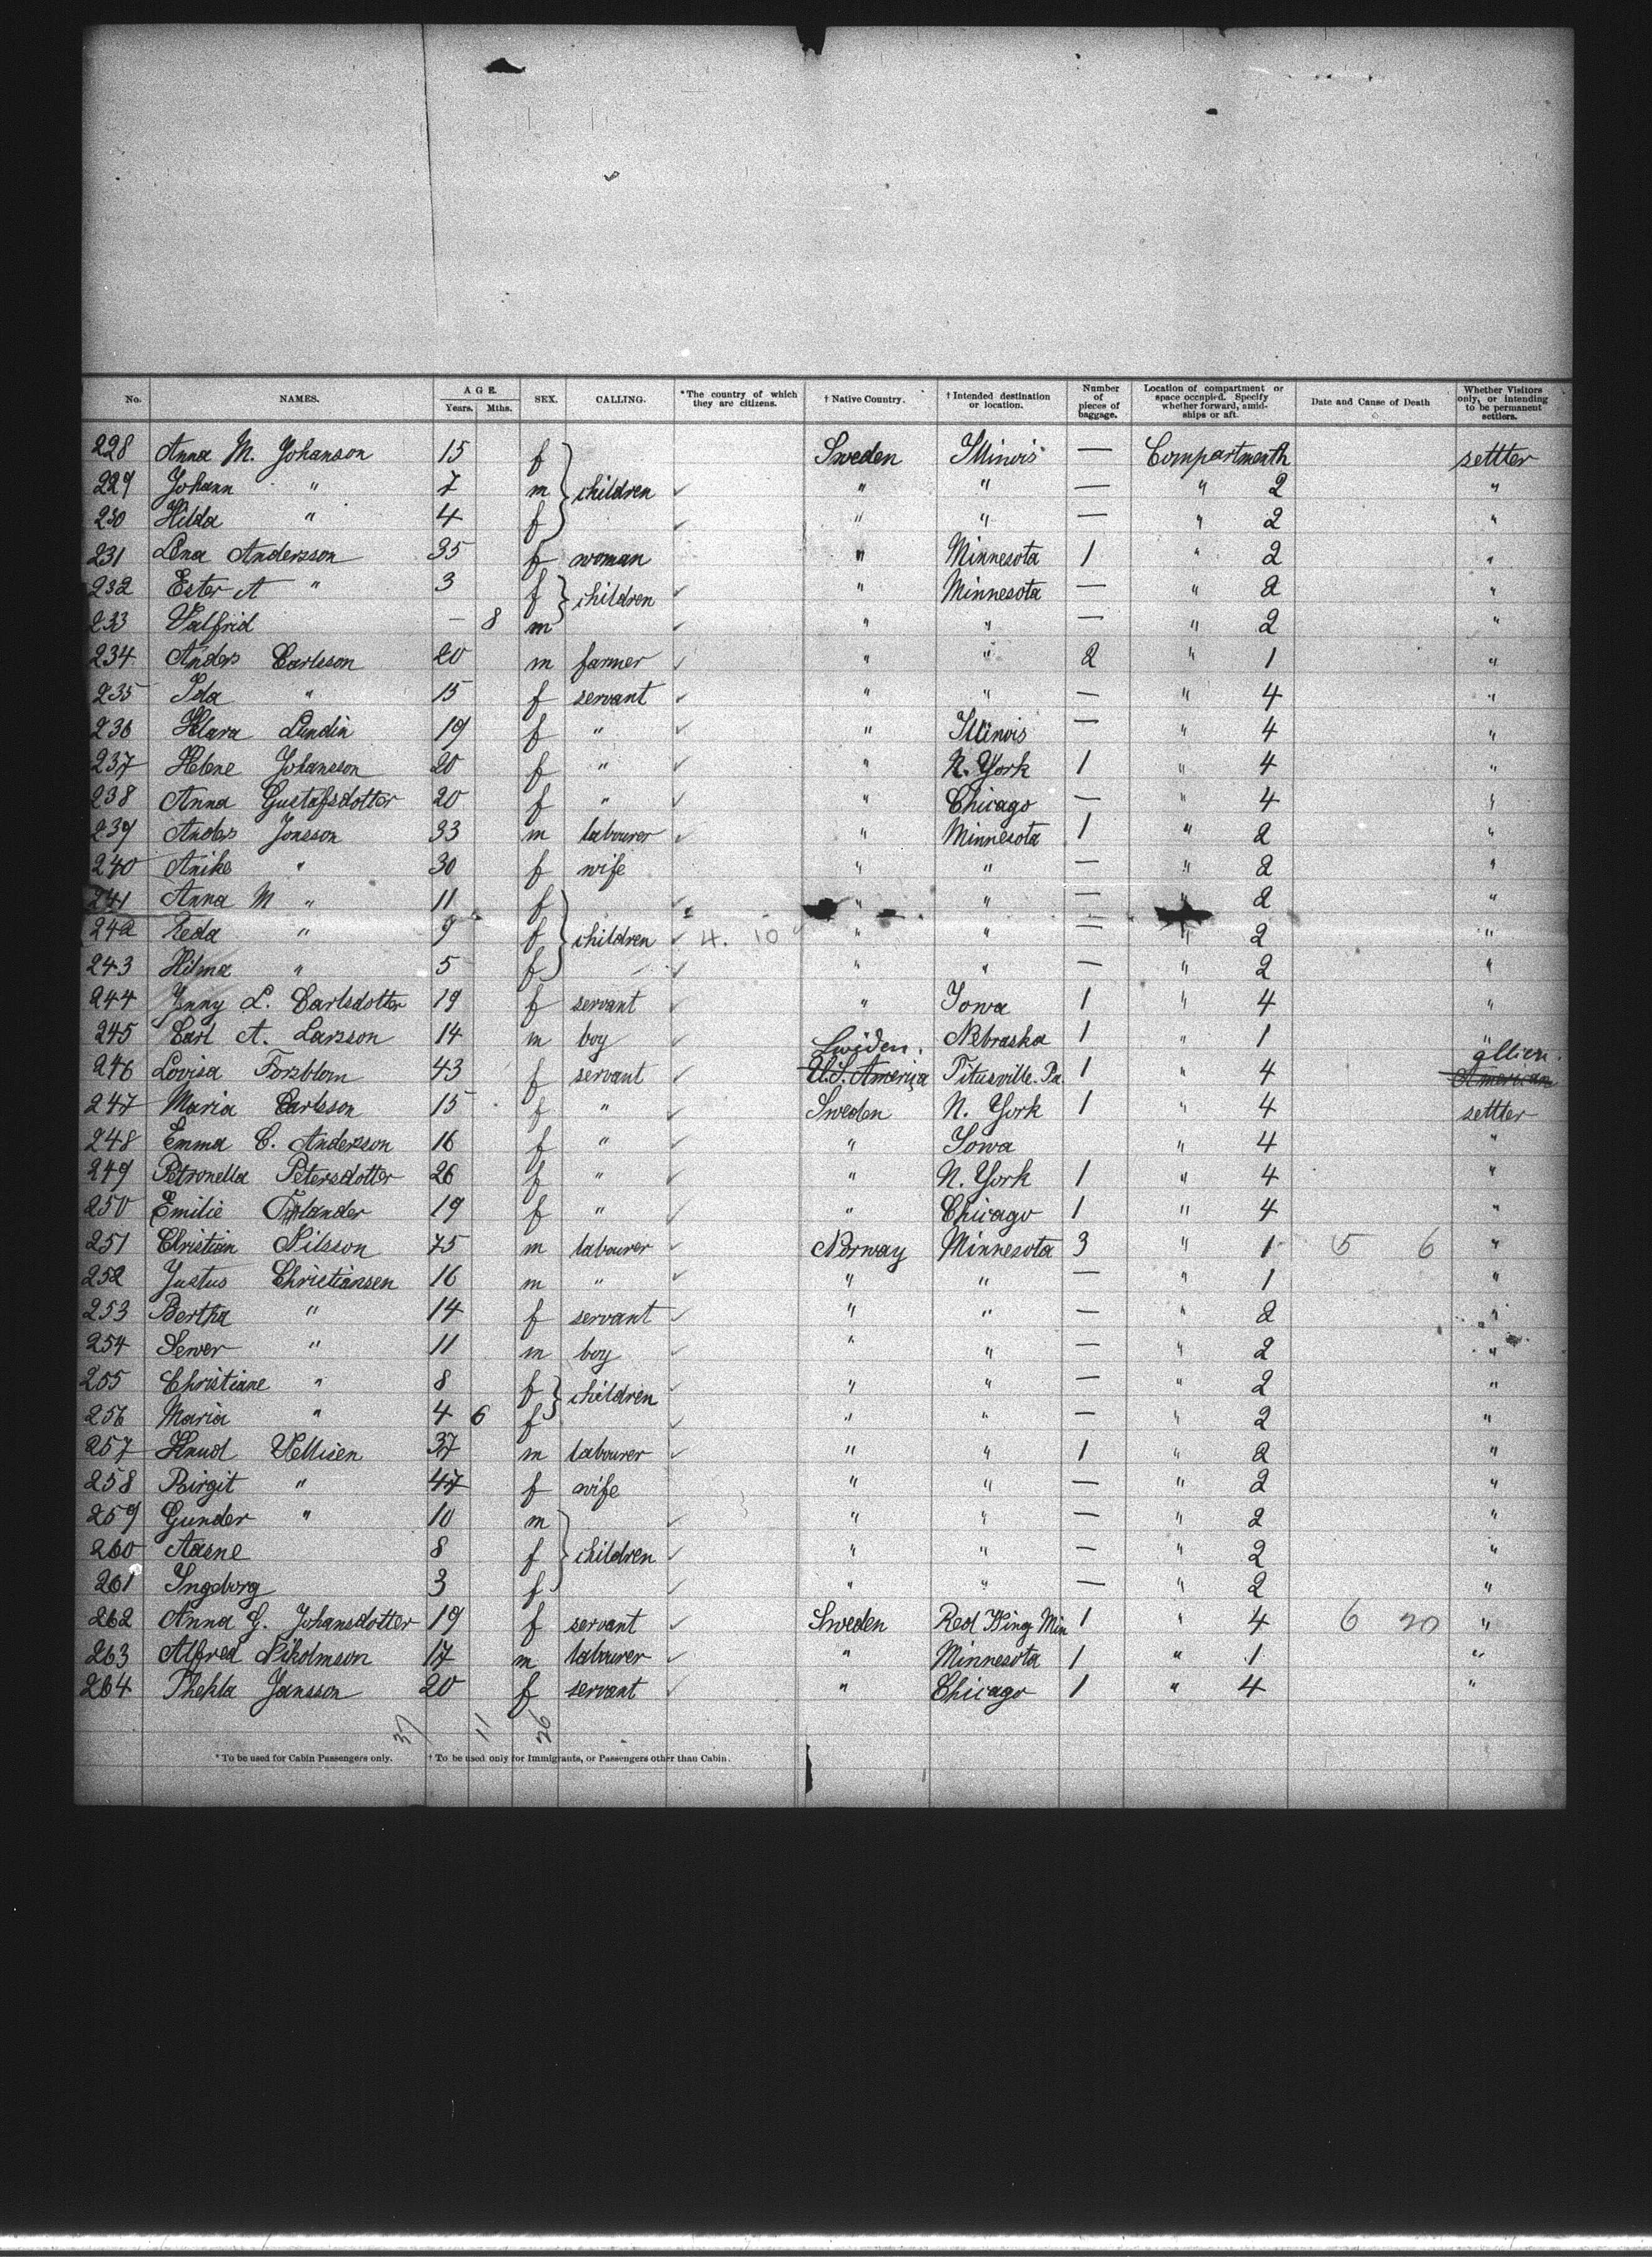 No. NAMES. AGE. Years. Mths. SEX. CALLING. *The country of which they are citizens. † Native Country. † Intended destination or location. Number of pieces of baggage. Location of compartment or space occupied. Specify whether forward, amidships or aft. Date and Cause of Death Whether Visitors only, or intending to be permanent settlers.
228 Anna M. Johanson 15 f Sweden Illinois — Compartment 4 settler
229 Johann " 7 m children ✓ " " — " 2 "
230 Hilda " 4 f ✓ " " — " 2 "
231 Lena Andersson 35 f woman " Minnesota 1 " 2 "
232 Ester A " 3 f children ✓ " Minnesota — " 2 "
233 Valfrid — 8 m ✓ " " — " 2 "
234 Anders Carlsson 20 m farmer ✓ " " 2 " 1 "
235 Ida " 15 f servant ✓ " " — " 4 "
236 Klara Lundin 19 f " ✓ " Illinois — " 4 "
237 Helene Johansson 20 f " ✓ " N. York 1 " 4 "
238 Anna Gustafsdotter 20 f " ✓ " Chicago — " 4 "
239 Anders Jonsson 33 m labourer ✓ " Minnesota 1 " 2 "
240 Anike " 30 f wife " " — " 2 "
241 Anna M " 11 f ✓ " " — " 2 "
242 Reda " 9 f children ✓ 4. 10 " " — " 2 "
243 Hilma " 5 f ✓ " " — " 2 "
244 Jenny L. Carlsdotter 19 f servant ✓ " Iowa 1 " 4 "
245 Carl A. Larsson 14 m boy " Nebraska 1 " 1 "
Swiden. allien.
246 Lovisa Forsblom 43 f servant U.S. America Titusville. Pa. 1 " 4 American
247 Maria Carlsson 15 f " ✓ Sweden N. York 1 " 4 settler
248 Emma C. Andersson 16 f " ✓ " Iowa " 4 "
249 Petronella Petersdotter 26 f " ✓ " N. York 1 " 4 "
250 Emilie 19 f " ✓ " Chicago 1 " 4 "
251 Christian Nilsson 75 m labourer ✓ Norway Minnesota 3 " 1 5 6 "
252 Justus Christiansen 16 m " ✓ " " — " 1 "
253 Bertha " 14 f servant ✓ " " — " 2 "
254 Sewer " 11 m boy ✓ " " — " 2 "
255 Christiane " 8 f children ✓ " " — " 2 "
256 Maria " 4 6 f ✓ " " — " 2 "
257 Knud Vellisen 37 m labourer ✓ " " 1 " 2 "
258 Birgit " 47 f wife " " — " 2 "
259 Gunder " 10 m ✓ " " — " 2 "
260 Aasne 8 f children ✓ " " — " 2 "
261 Ingeborg 3 f ✓ " " — " 2 "
262 Anna G. Johansdotter 19 f servant ✓ Sweden Red Wing Min 1 " 4 6 20 "
263 Alfred 17 m labourer ✓ " Minnesota 1 " 1 "
264 Thekla Jansson 20 f servant ✓ " Chicago 1 " 4 "
37 11 26
* To be used for Cabin Passengers only. † To be used only for Immigrants, or Passengers other than Cabin.